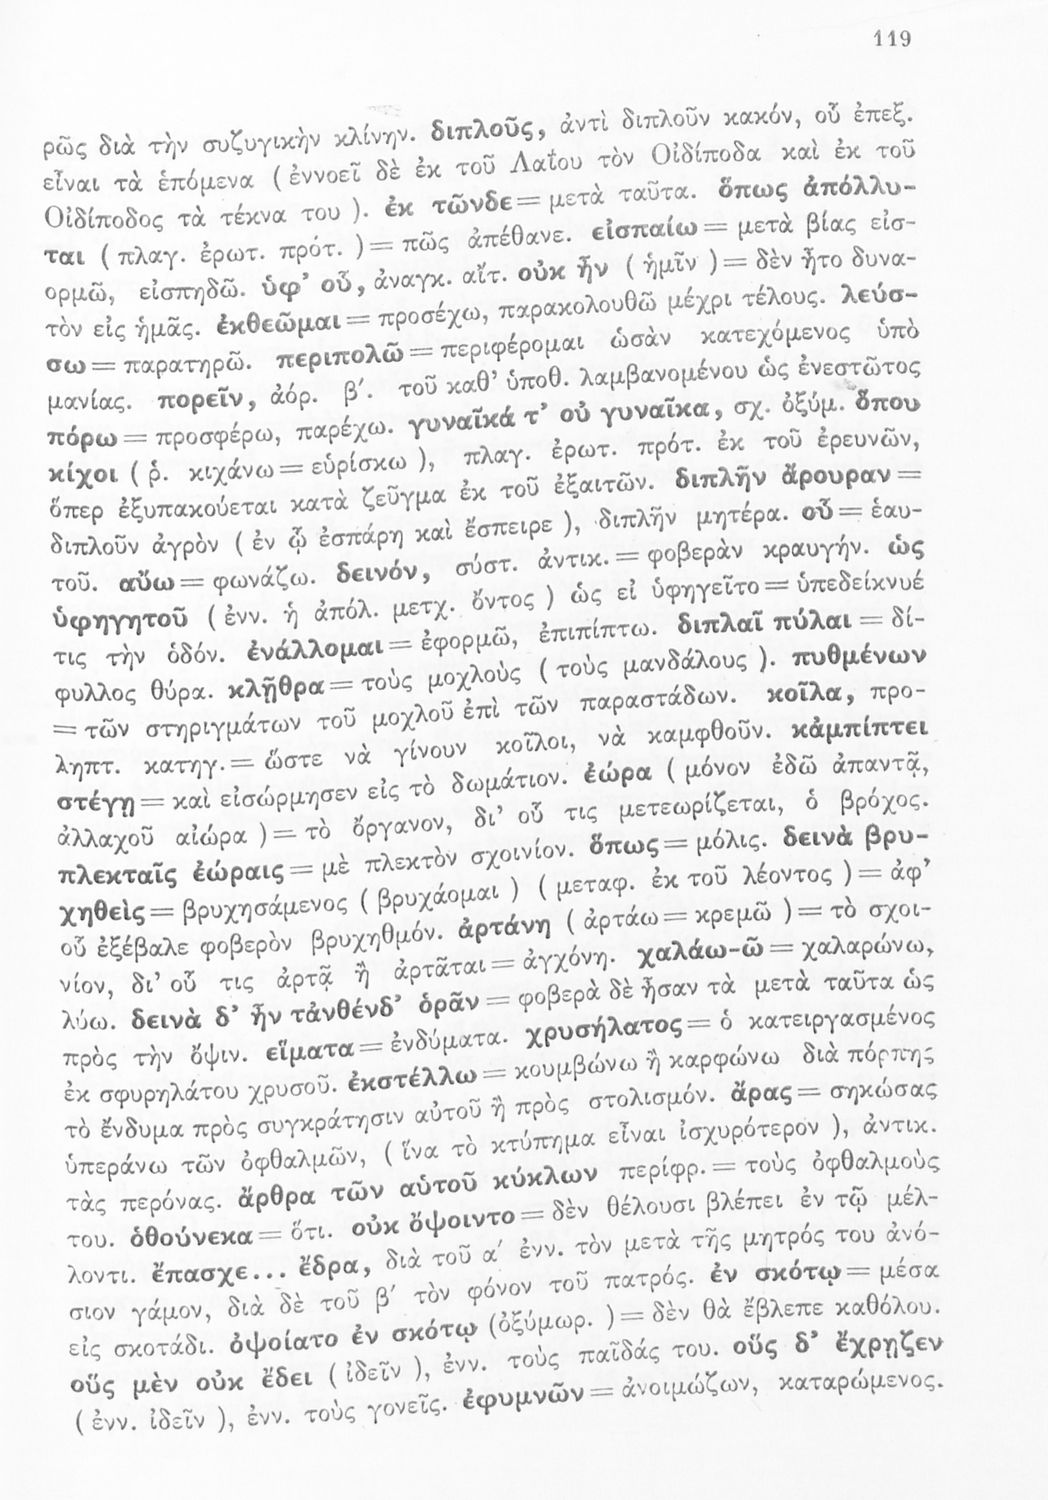 119
ρῶς διὰ τὴν συζυγικὴν κλίνην. διπλοῦς, ἀντὶ διπλοῦν κακόν, οὗ ἐπεξ.
εἶναι τὰ ἑπόμενα ( ἐννοεῖ δὲ ἐκ τοῦ Λαΐου τὸν Οἰδίποδα καὶ ἐκ τοῦ
Οἰδίποδος τὰ τέκνα του ). ἐκ τῶνδε = μετὰ ταῦτα. ὅπως ἀπόλλυ-
ται ( πλαγ. ἐρωτ. πρότ. ) = πῶς ἀπέθανε. εἰσπαίω = μετὰ βίας εἰσ-
ορμῶ, εἰσπηδῶ. ὑφ’ οὗ, ἀναγκ. αἴτ. οὐκ ἦν ( ἡμῖν ) = δὲν ἦτο δυνα-
τὸν εἰς ἡμᾶς. ἐκθεῶμαι = προσέχω, παρακολουθῶ μέχρι τέλους. λεύσ-
σω = παρατηρῶ. περιπολῶ = περιφέρομαι ὡσὰν κατεχόμενος ὑπὸ
μανίας. πορεῖν, ἀόρ. β΄. τοῦ καθ’ ὑποθ. λαμβανομένου ὡς ἐνεστῶτος
πόρω = προσφέρω, παρέχω. γυναῖκά τ’ οὐ γυναῖκα, σχ. ὀξύμ. ὅπου
κίχοι ( ῥ. κιχάνω = εὑρίσκω ), πλαγ. ἐρωτ. πρότ. ἐκ τοῦ ἐρευνῶν,
ὅπερ ἐξυπακούεται κατὰ ζεῦγμα ἐκ τοῦ ἐξαιτῶν. διπλῆν ἄρουραν =
διπλοῦν ἀγρὸν ( ἐν ᾧ ἐσπάρη καὶ ἔσπειρε ), διπλῆν μητέρα. οὗ = ἑαυ-
τοῦ. αὔω = φωνάζω. δεινόν, σύστ. ἀντικ. = φοβερὰν κραυγήν. ὡς
ὑφηγητοῦ ( ἐνν. ἡ ἀπόλ. μετχ. ὄντος ) ὡς εἰ ὑφηγεῖτο = ὑπεδείκνυέ
τις τὴν ὁδόν. ἐνάλλομαι = ἐφορμῶ, ἐπιπίπτω. διπλαῖ πύλαι = δί-
φυλλος θύρα. κλῇθρα = τοὺς μοχλοὺς ( τοὺς μανδάλους ). πυθμένων
= τῶν στηριγμάτων τοῦ μοχλοῦ ἐπὶ τῶν παραστάδων. κοῖλα, προ-
ληπτ. κατηγ. = ὥστε νὰ γίνουν κοῖλοι, νὰ καμφθοῦν. κἀμπίπτει
στέγῃ = καὶ εἰσώρμησεν εἰς τὸ δωμάτιον. ἐώρα ( μόνον ἐδῶ ἀπαντᾷ,
ἀλλαχοῦ αἰώρα ) = τὸ ὄργανον, δι’ οὗ τις μετεωρίζεται, ὁ βρόχος.
πλεκταῖς ἐώραις = μὲ πλεκτὸν σχοινίον. ὅπως = μόλις. δεινὰ βρυ-
χηθεὶς = βρυχησάμενος ( βρυχάομαι ) ( μεταφ. ἐκ τοῦ λέοντος ) = ἀφ’
οὗ ἐξέβαλε φοβερὸν βρυχηθμόν. ἀρτάνη ( ἀρτάω = κρεμῶ ) = τὸ σχοι-
νίον, δι’ οὗ τις ἀρτᾷ ἢ ἀρτᾶται = ἀγχόνη. χαλάω-ῶ = χαλαρώνω,
λύω. δεινὰ δ’ ἦν τἀνθένδ’ ὁρᾶν = φοβερὰ δὲ ἦσαν τὰ μετὰ ταῦτα ὡς
πρὸς τὴν ὄψιν. εἵματα = ἐνδύματα. χρυσήλατος = ὁ κατειργασμένος
ἐκ σφυρηλάτου χρυσοῦ. ἐκστέλλω = κουμβώνω ἢ καρφώνω διὰ πόρπης
τὸ ἔνδυμα πρὸς συγκράτησιν αὐτοῦ ἢ πρὸς στολισμόν. ἄρας = σηκώσας
ὑπεράνω τῶν ὀφθαλμῶν, ( ἵνα τὸ κτύπημα εἶναι ἰσχυρότερον ), ἀντικ.
τὰς περόνας. ἄρθρα τῶν αὑτοῦ κύκλων περίφρ. = τοὺς ὀφθαλμούς
του. ὁθούνεκα = ὅτι. οὐκ ὄψοιντο = δὲν θέλουσι βλέπει ἐν τῷ μέλ-
λοντι. ἔπασχε... ἔδρα, διὰ τοῦ α΄ ἐνν. τὸν μετὰ τῆς μητρός του ἀνό-
σιον γάμον, διὰ δὲ τοῦ β΄ τὸν φόνον τοῦ πατρός. ἐν σκότῳ = μέσα
εἰς σκοτάδι. ὀψοίατο ἐν σκότῳ (ὀξύμωρ. ) = δὲν θὰ ἔβλεπε καθόλου.
οὕς μὲν οὐκ ἔδει ( ἰδεῖν ), ἐνν. τοὺς παῖδάς του. οὕς δ’ ἔχρῃζεν
( ἐνν. ἰδεῖν ), ἐνν. τοὺς γονεῖς. ἐφυμνῶν = ἀνοιμώζων, καταρώμενος.